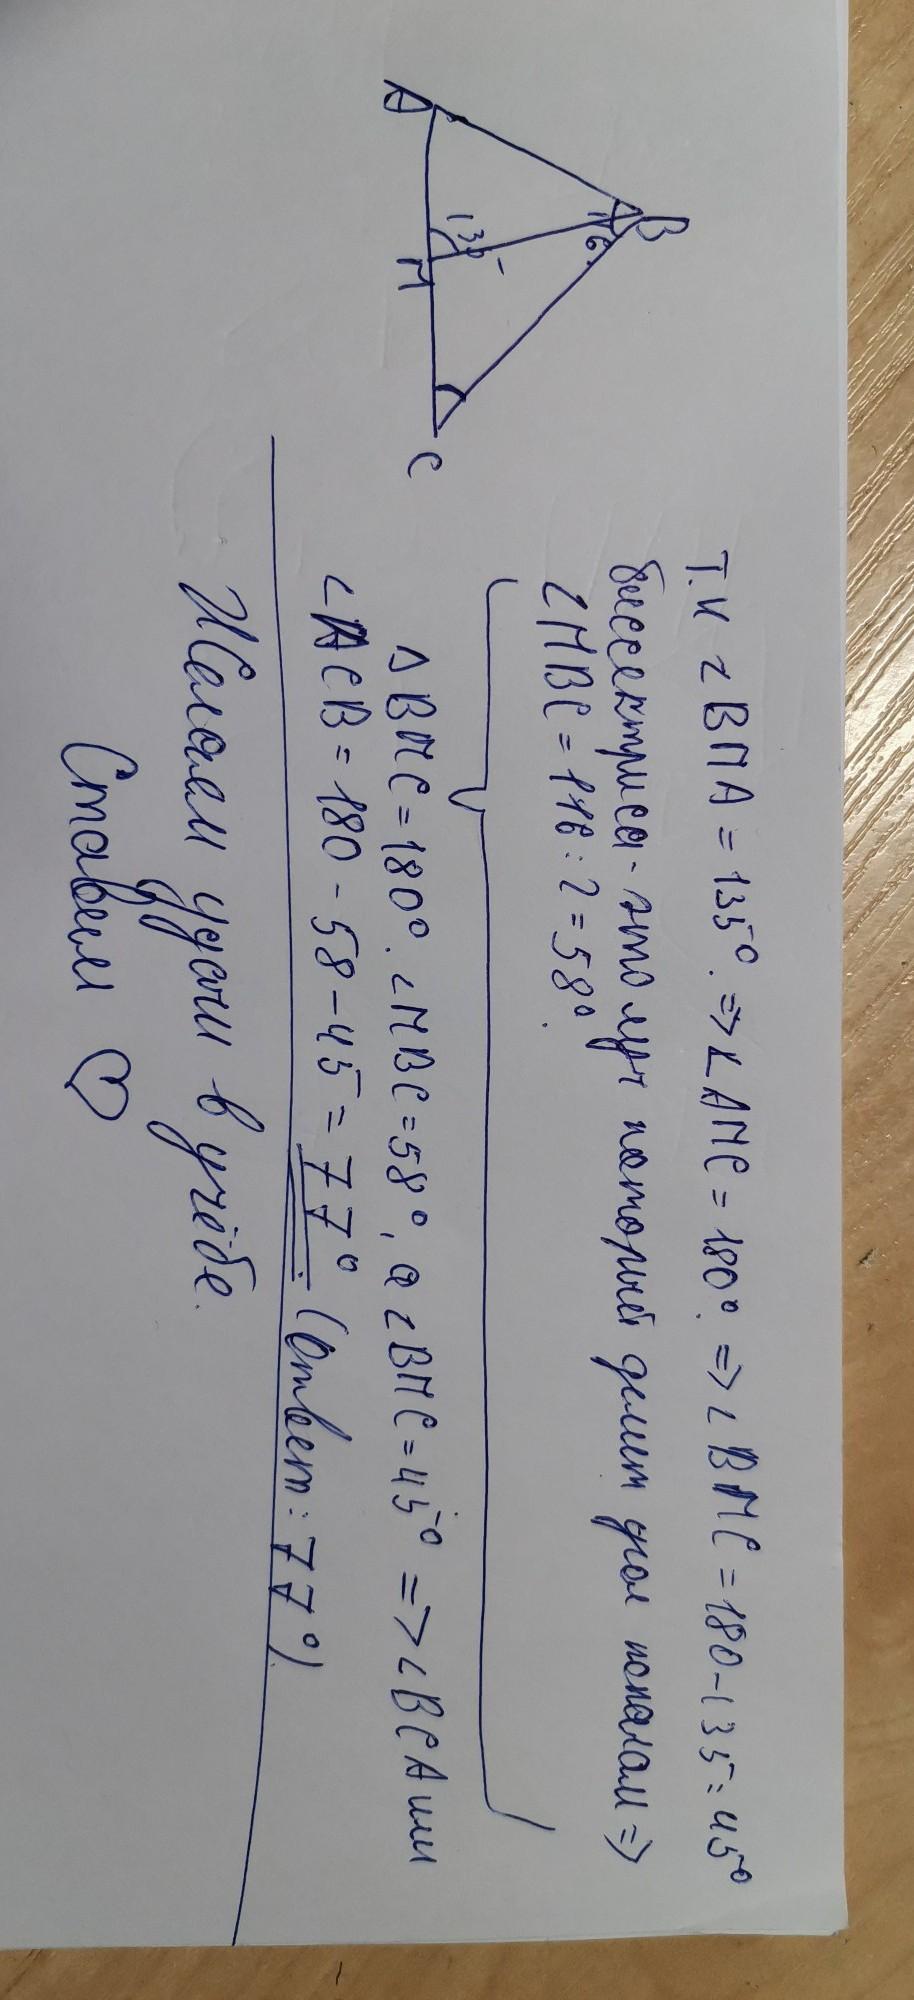 B
116.
135
A
M
C
Т.к ∠BMA = 135°. => ∠AMC = 180°. => ∠BMC = 180-135=45°
биссектриса-это луч который делит угол пополам =>
∠MBC = 116:2=58°.
△BMC=180°. ∠MBC=58°, а ∠BMC=45° => ∠BCA или
∠ACB = 180-58-45 = 77° (Ответ: 77°)
Желаем удачи в учёбе.
Ставим ♡